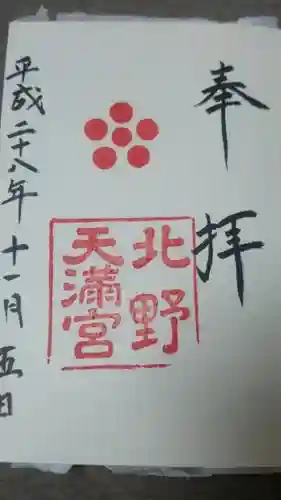 奉拝
北野
天満宮
平成二十八年十一月五日